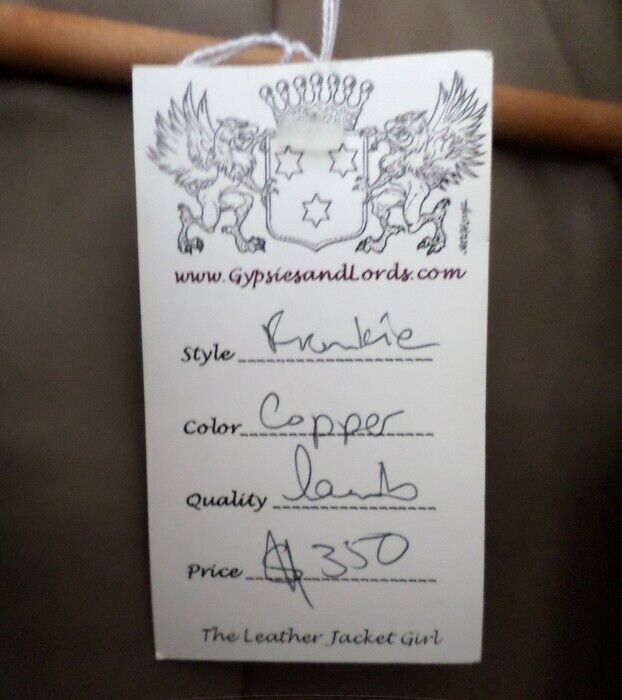 www.GypsiesandLords.com
Style Frankie
Color Copper
Quality lamb
Price $350
The Leather Jacket Girl